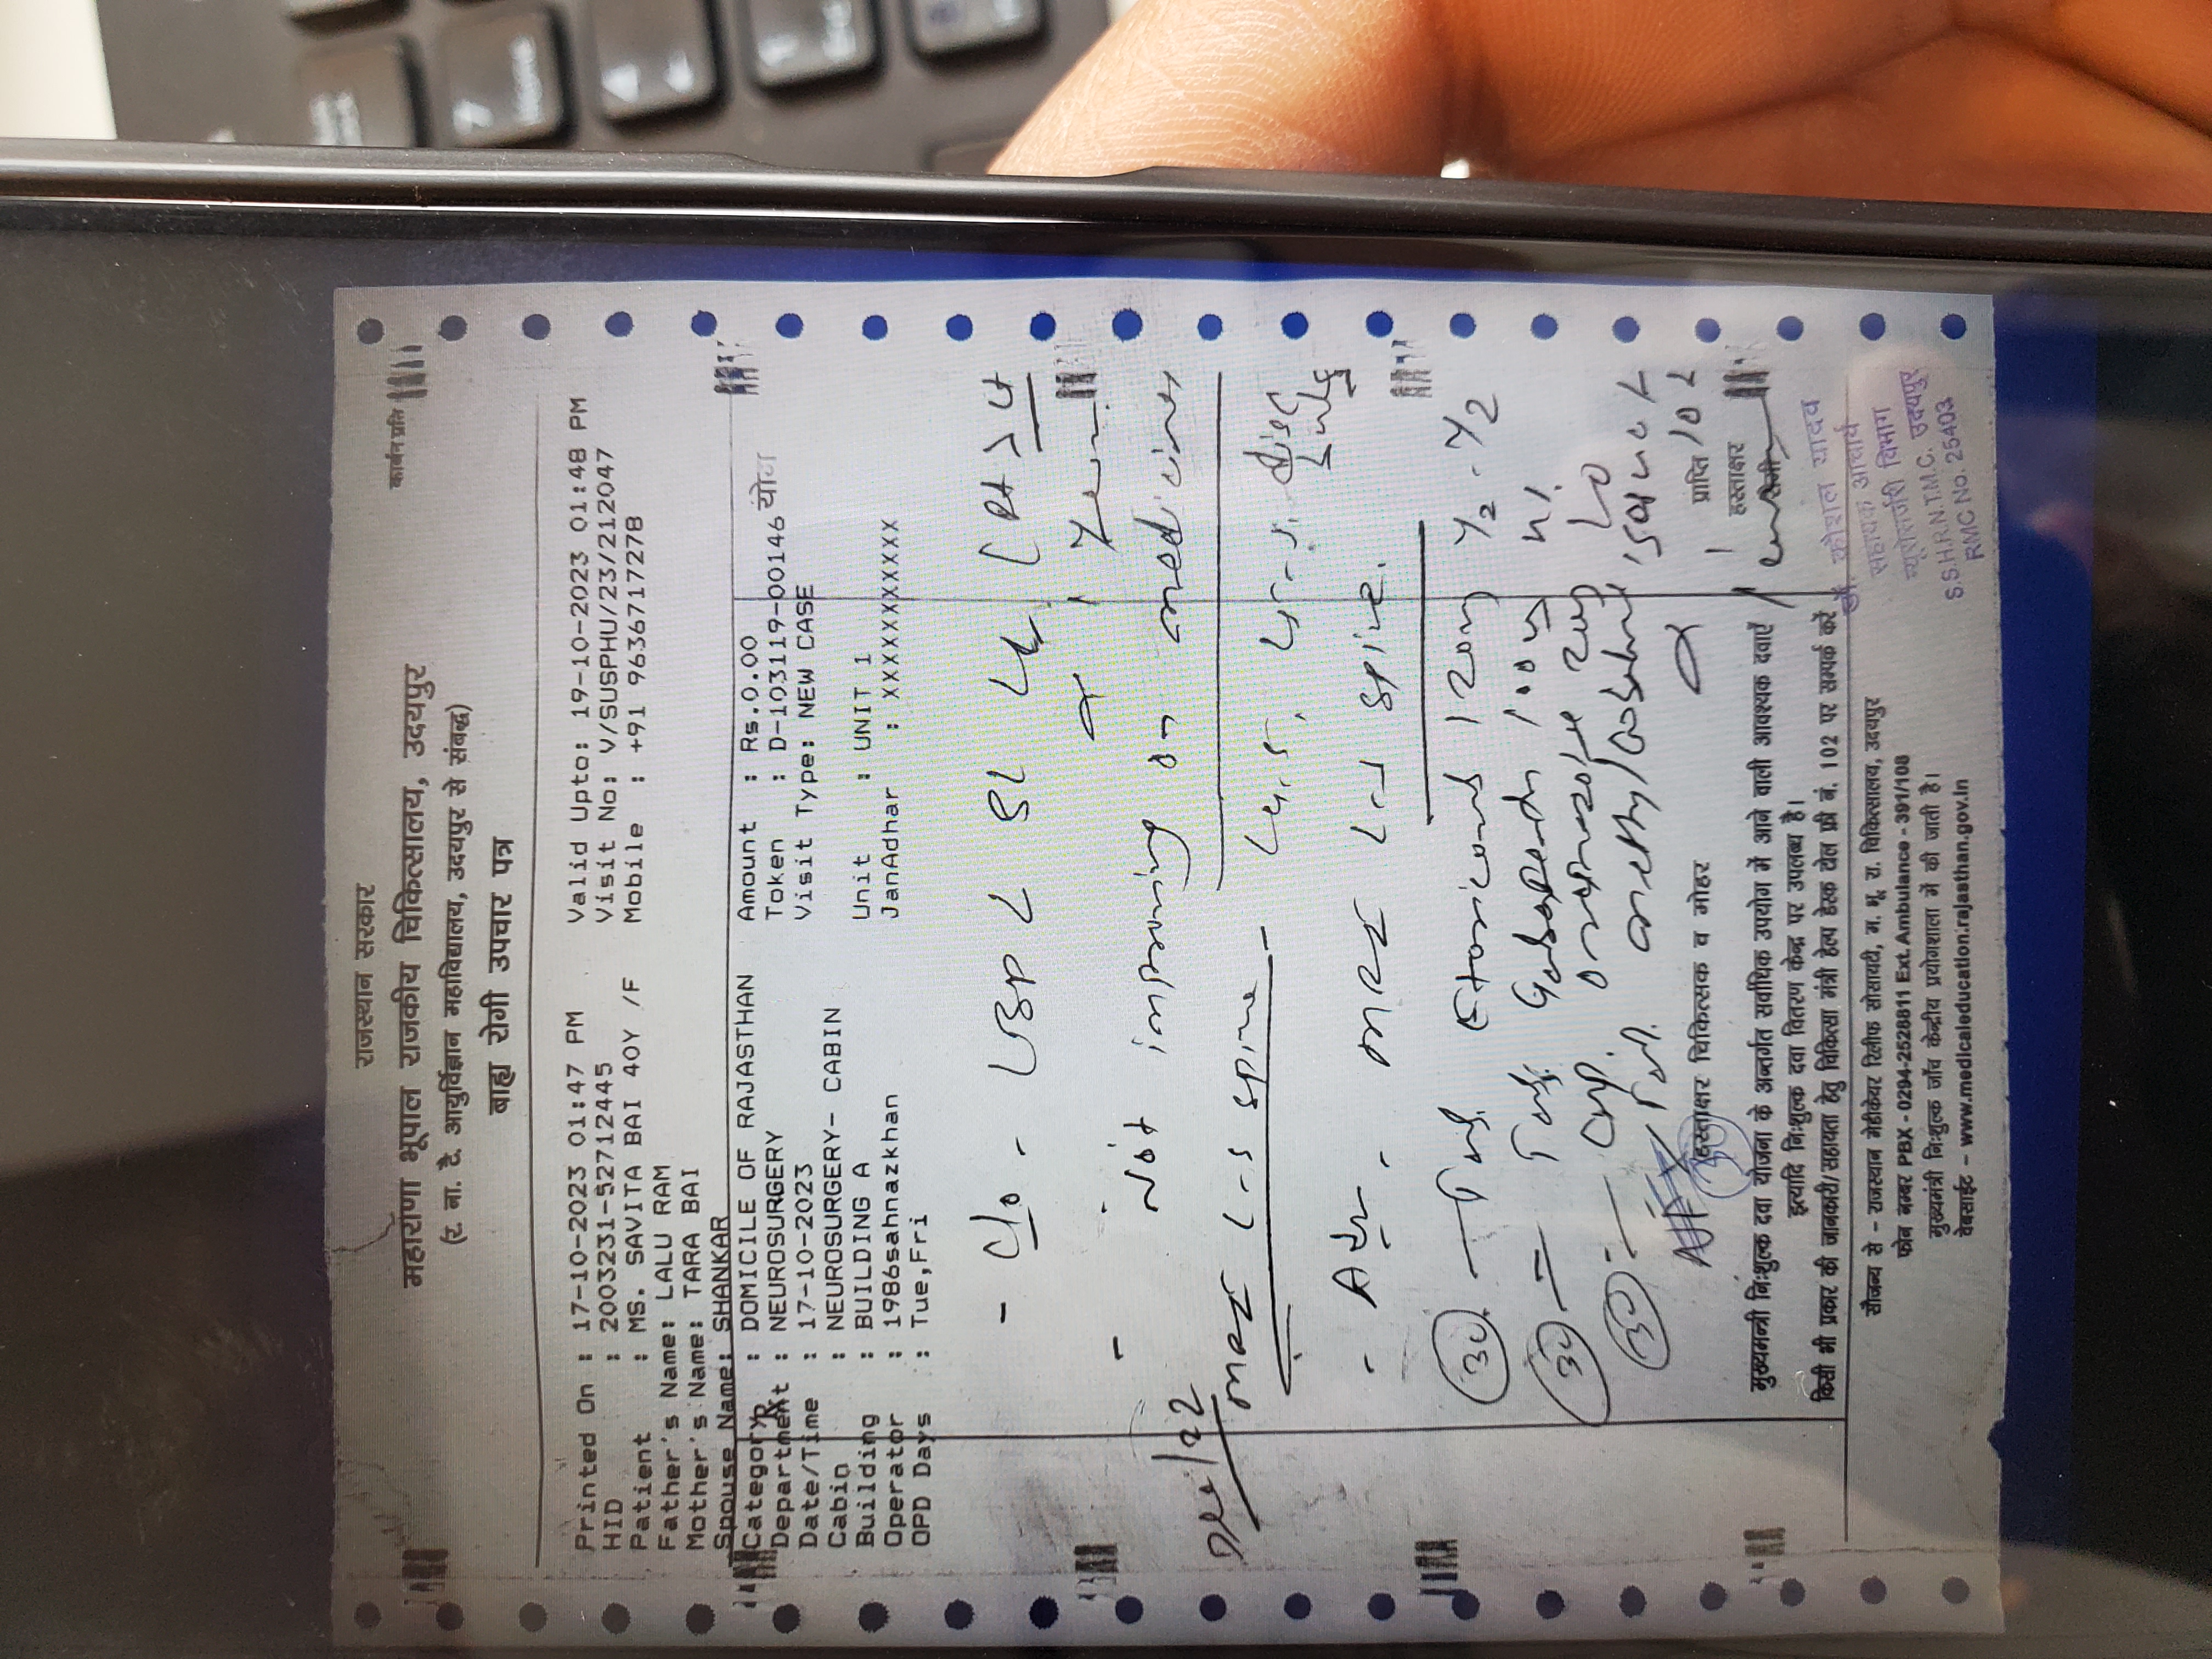 राजस्थान सरकार
कार्बन प्रति
महाराणा भूपाल राजकीय चिकित्सालय, उदयपुर
(र. ना. टै. आयुर्विज्ञान महाविद्यालय, उदयपुर से संबद्ध)
बाह्य रोगी उपचार पत्र
Printed On : 17-10-2023 01:47 PM Valid Upto: 19-10-2023 01:48 PM
HID : 2003231-52712445 Visit No: V/SUSPHU/23/212047
Patient : MS. SAVITA BAI 40Y /F Mobile : +91 9636717278
Father's Name: LALU RAM
Mother's Name: TARA BAI
Spouse Name: SHANKAR
Category : DOMICILE OF RAJASTHAN Amount : Rs.0.00
Department : NEUROSURGERY Token : D-103119-00146
Date/Time : 17-10-2023 Visit Type: NEW CASE
Cabin : NEUROSURGERY- CABIN
Building : BUILDING A Unit : UNIT 1
Operator : 1986sahnazkhan JanAdhar : XXXXXXXXXXX
OPD Days : Tue,Fri
- C/o - LBP
1 Year
- Not improving on medicines
Dec/22
MRI L-S spine - L4-5, L5-S1 disc bulg
- Adv. - MRI L-S spine.
30 - Tab. 120mg 1/2 - 1/2
30 - Tab. Gabapentin 100mg
Cap. Omeprazole 20mg
30 - Tab.
हस्ताक्षर चिकित्सक व मोहर
प्राप्ति
हस्ताक्षर
मुख्यमन्त्री निःशुल्क दवा योजना के अन्तर्गत सर्वाधिक उपयोग में आने वाली आवश्यक दवाएँ
इत्यादि निःशुल्क दवा वितरण केन्द्र पर उपलब्ध है।
किसी भी प्रकार की जानकारी/सहायता हेतु चिकित्सा मंत्री हेल्प डेस्क टोल फ्री नं. 102 पर सम्पर्क करें
डॉ. कौशल यादव
सहायक आचार्य
न्यूरोसर्जरी विभाग
उदयपुर
RMC No. 25403
सौजन्य से - राजस्थान मेडीकेयर रिलीफ सोसायटी, म. भू. रा. चिकित्सालय, उदयपुर
फोन नम्बर PBX - 0294-2528811 Ext. Ambulance - 391/108
मुख्यमंत्री निःशुल्क जाँच केन्द्रीय प्रयोगशाला में की जाती है।
वेबसाईट - www.medicaleducation.rajasthan.gov.in